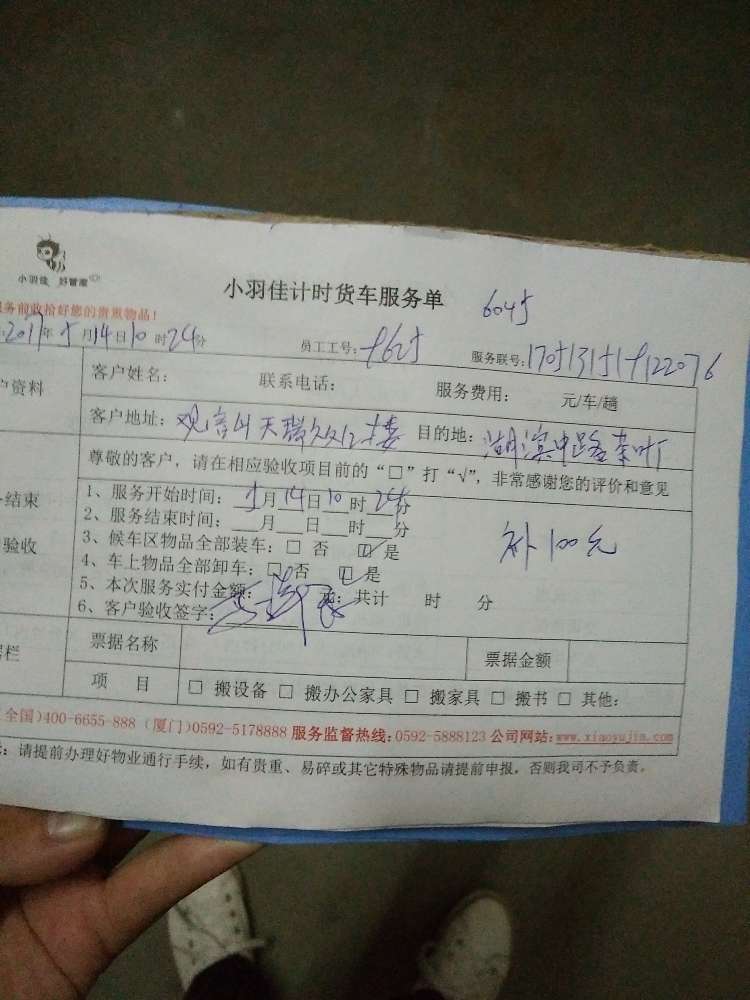 小羽佳 好管家
小羽佳计时货车服务单
6045
务前收拾好您的贵重物品!
2017年5月14日10时24分
员工工号:
服务联号:
户资料
客户姓名: 联系电话: 服务费用: 元/车/趟
客户地址: 观音山天瑞 楼 目的地: 湖滨中路茶叶
尊敬的客户，请在相应验收项目前的“□”打“√”，非常感谢您的评价和意见
结束
验收
1、服务开始时间: 5月14日10时24分
2、服务结束时间: 月 日 时 分
3、候车区物品全部装车: □ 否 ☑ 是
4、车上物品全部卸车: □ 否 ☑ 是
补100元
5、本次服务实付金额: 元; 共计 时 分
6、客户验收签字:
栏
票据名称 票据金额
项 目 □ 搬设备 □ 搬办公家具 □ 搬家具 □ 搬书 □ 其他:
全国)400-6655-888 (厦门)0592-5178888 服务监督热线:0592-5888123 公司网站:www.xiaoyujia.com
: 请提前办理好物业通行手续，如有贵重、易碎或其它特殊物品请提前申报，否则我司不予负责。